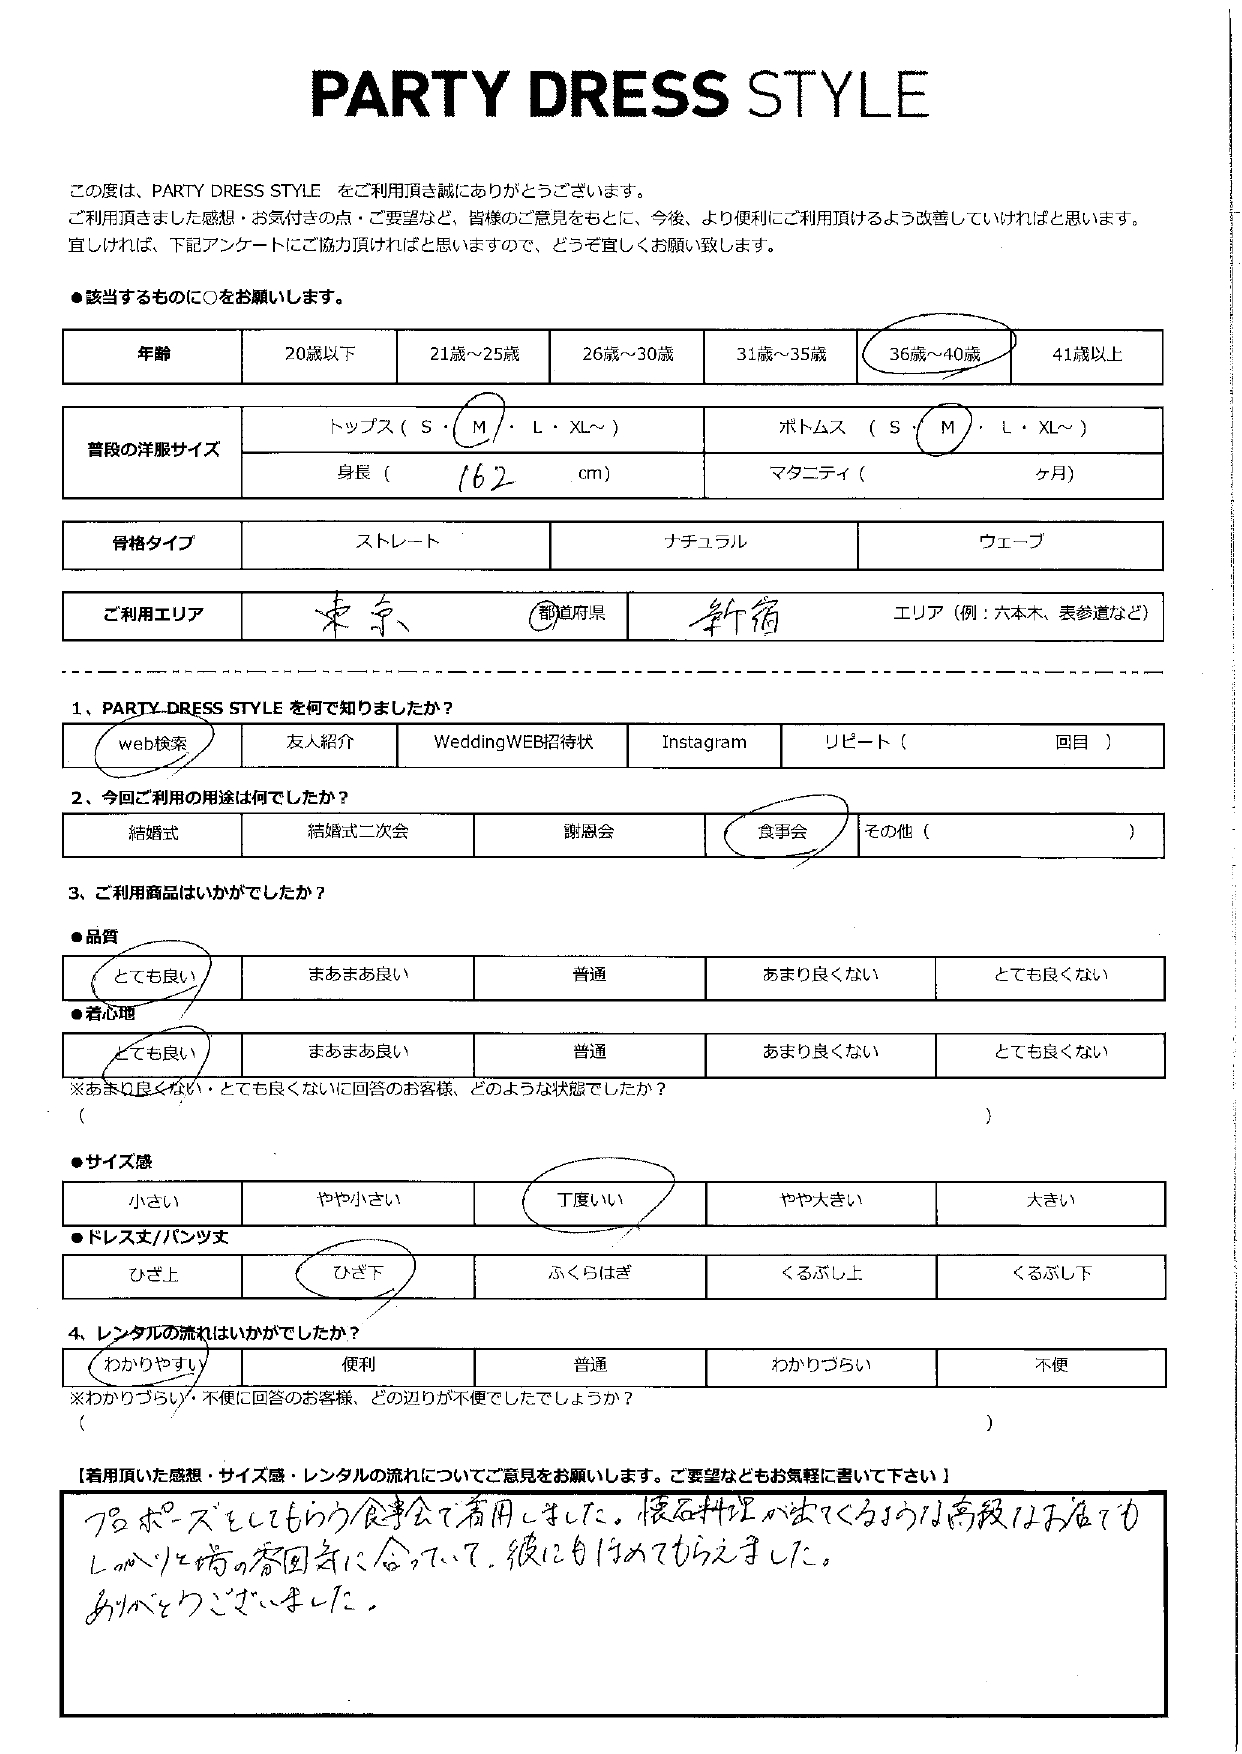 PARTY DRESS STYLE
この度は、PARTY DRESS STYLE　をご利用頂き誠にありがとうございます。
ご利用頂きました感想・お気付きの点・ご要望など、皆様のご意見をもとに、今後、より便利にご利用頂けるよう改善していければと思います。
宜しければ、下記アンケートにご協力頂ければと思いますので、どうぞ宜しくお願い致します。
●該当するものに○をお願いします。
年齢 20歳以下 21歳～25歳 26歳～30歳 31歳～35歳 36歳～40歳 41歳以上
普段の洋服サイズ トップス ( S ・ M ・ L ・ XL～ ) ボトムス ( S ・ M ・ L ・ XL～ )
身長 ( 162 cm) マタニティ ( ヶ月)
骨格タイプ ストレート ナチュラル ウェーブ
ご利用エリア 東京 都道府県 新宿 エリア（例：六本木、表参道など）
1、PARTY DRESS STYLE を何で知りましたか？
web検索 友人紹介 WeddingWEB招待状 Instagram リピート ( 回目 )
2、今回ご利用の用途は何でしたか？
結婚式 結婚式二次会 謝恩会 食事会 その他 ( )
3、ご利用商品はいかがでしたか？
●品質
とても良い まあまあ良い 普通 あまり良くない とても良くない
●着心地
とても良い まあまあ良い 普通 あまり良くない とても良くない
※あまり良くない・とても良くないに回答のお客様、どのような状態でしたか？
( )
●サイズ感
小さい やや小さい 丁度いい やや大きい 大きい
●ドレス丈/パンツ丈
ひざ上 ひざ下 ふくらはぎ くるぶし上 くるぶし下
4、レンタルの流れはいかがでしたか？
わかりやすい 便利 普通 わかりづらい 不便
※わかりづらい・不便に回答のお客様、どの辺りが不便でしたでしょうか？
( )
【着用頂いた感想・サイズ感・レンタルの流れについてご意見をお願いします。ご要望などもお気軽に書いて下さい 】
プロポーズをしてもらう食事会で着用しました。懐石料理が出てくるような高級なお店でも
しっかりと場の雰囲気に合っていて、彼にもほめてもらえました。
ありがとうございました。